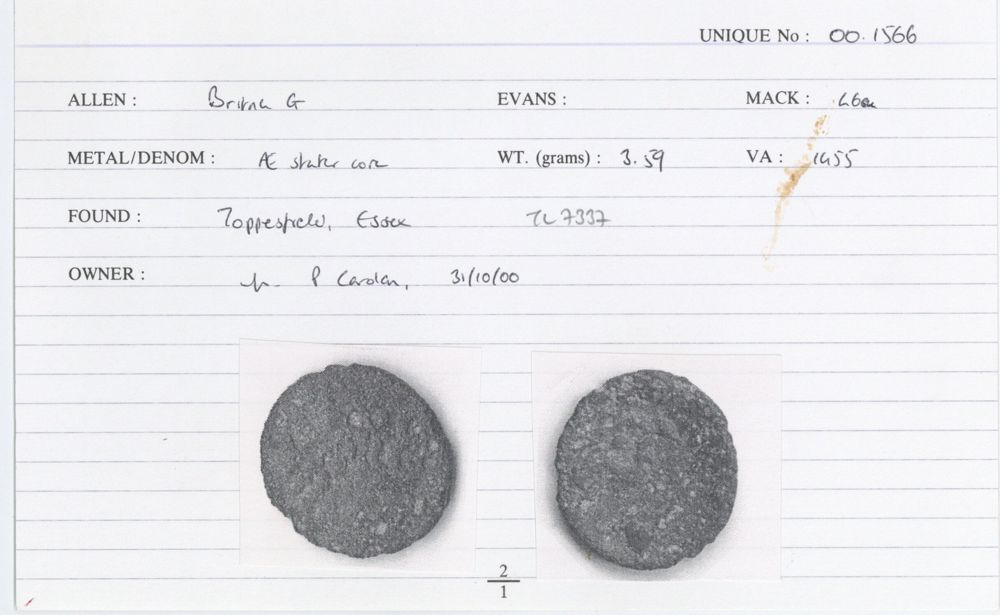 UNIQUE No : 00.1566
ALLEN : British G EVANS : MACK : 46a
METAL/DENOM : Æ stater core WT. (grams) : 3.59 VA : 1455
FOUND : Toppesfield, Essex TL 7337
OWNER : P Carolan, 31/10/00
2
1